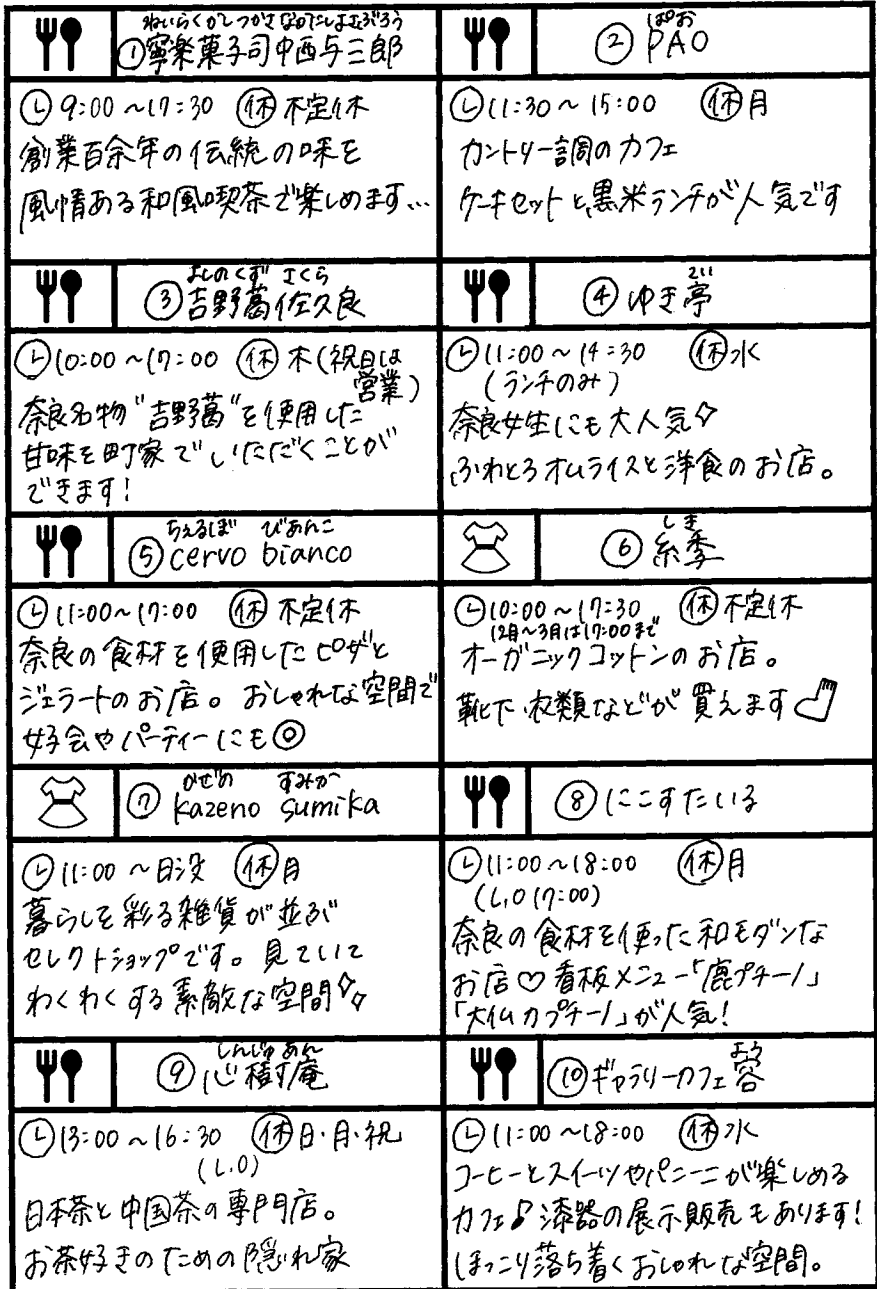 ねいらくかしつかさなかにしよさぶろう
①寧楽菓子司中西与三郎
9:00～17:30 休 不定休
創業百余年の伝統の味を
風情ある和風喫茶で楽しめます…
ぱお
②PAO
11:30～15:00 休 月
カントリー調のカフェ
ケーキセットと黒米ランチが人気です
よしのくず さくら
③吉野葛佐久良
10:00～17:00 休 木(祝日は
営業)
奈良名物"吉野葛"を使用した
甘味を町家でいただくことが
できます!
てい
④ゆき亭
11:00～14:30 休 水
(ランチのみ)
奈良女生にも大人気
ふわとろオムライスと洋食のお店。
ちぇるぼ びあんこ
⑤cervo bianco
11:00～17:00 休 不定休
奈良の食材を使用したピザと
ジェラートのお店。おしゃれな空間で
女子会やパーティーにも◎
しき
⑥糸季
10:00～17:30 休 不定休
12月～3月は17:00まで
オーガニックコットンのお店。
靴下、衣類などが買えます
かぜの すみか
⑦kazeno sumika
11:00～日没 休 月
暮らしを彩る雑貨が並ぶ
セレクトショップです。見ていて
わくわくする素敵な空間
⑧にこすたいる
11:00～18:00 休 月
(L.O 17:00)
奈良の食材を使った和モダンな
お店♡看板メニュー「鹿プチーノ」
「大仏カプチーノ」が人気!
しんじゅあん
⑨心樹庵
13:00～16:30 休 日・月・祝
(L.O)
日本茶と中国茶の専門店。
お茶好きのための隠れ家
よう
⑩ギャラリーカフェ容
11:00～18:00 休 水
コーヒーとスイーツやパニーニが楽しめる
カフェ♪漆器の展示販売もあります!
ほっこり落ち着くおしゃれな空間。